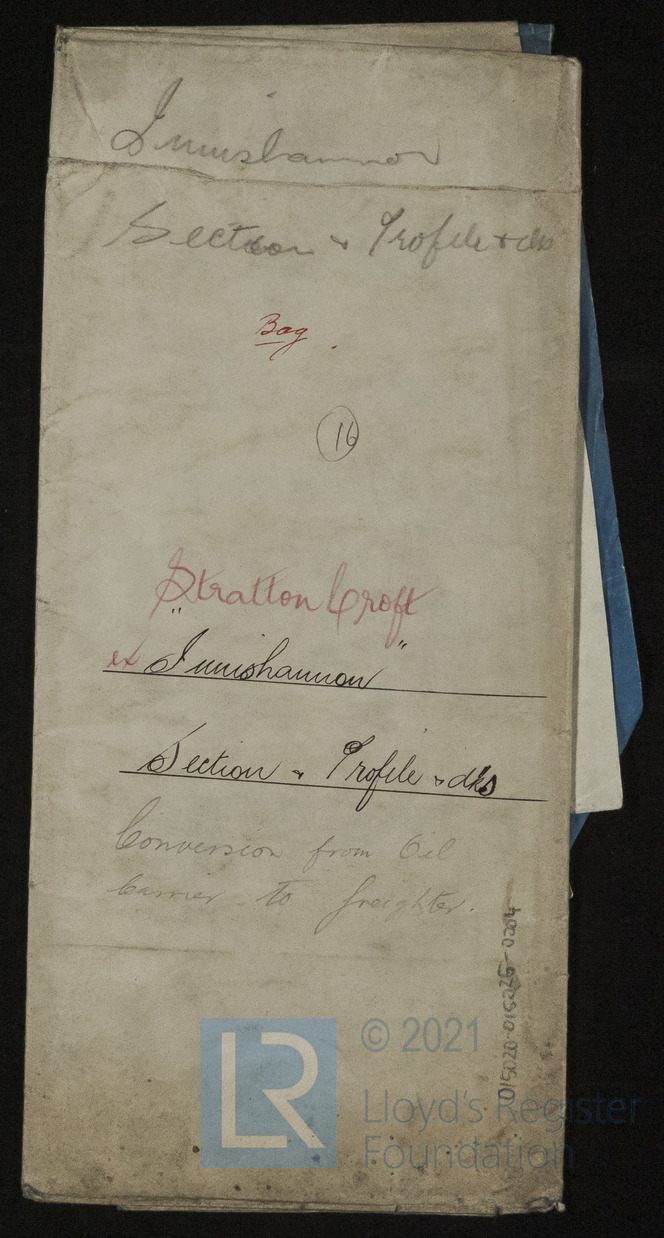 Innishannon
Section & Profile & dks
Bag.
16
Stratton Croft
ex "Innishannon"
Section & Profile & dks
Conversion from Oil
Carrier to freighter.
015020-015026-0204
LR
© 2021
Lloyd's Register
Foundation